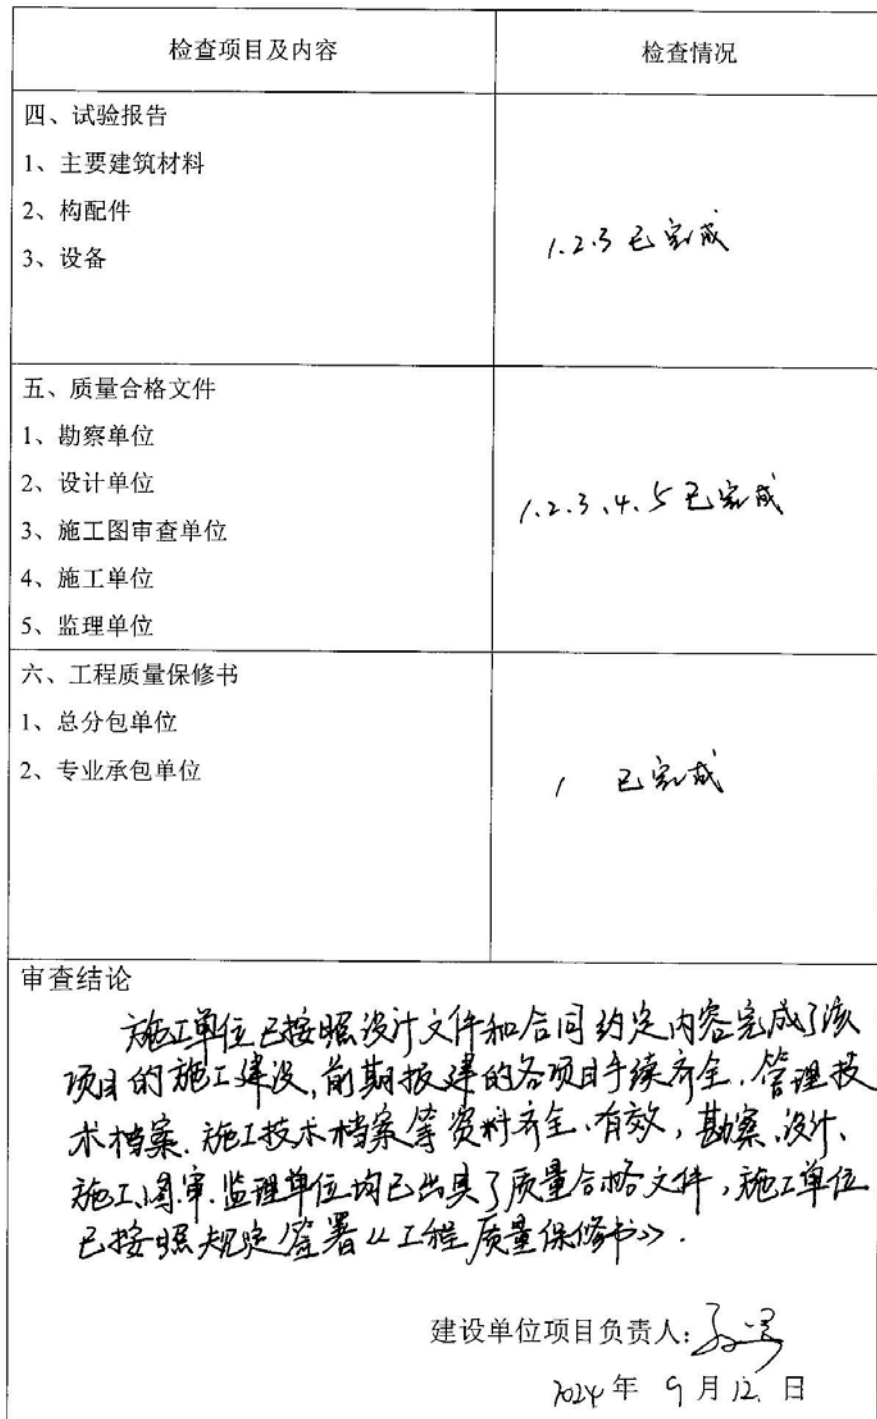 检查项目及内容
检查情况
四、试验报告
1、主要建筑材料
2、构配件
3、设备
1.2.3 已完成
五、质量合格文件
1、勘察单位
2、设计单位
3、施工图审查单位
4、施工单位
5、监理单位
1.2.3.4.5 已完成
六、工程质量保修书
1、总分包单位
2、专业承包单位
1 已完成
审查结论
施工单位已按照设计文件和合同约定内容完成了该
项目的施工建设,前期报建的各项目手续齐全.管理技
术档案.施工技术档案等资料齐全、有效,勘察、设计、
施工、图审、监理单位均已出具了质量合格文件,施工单位
已按照规定签署《工程质量保修书》.
建设单位项目负责人:
2024年 9月12日